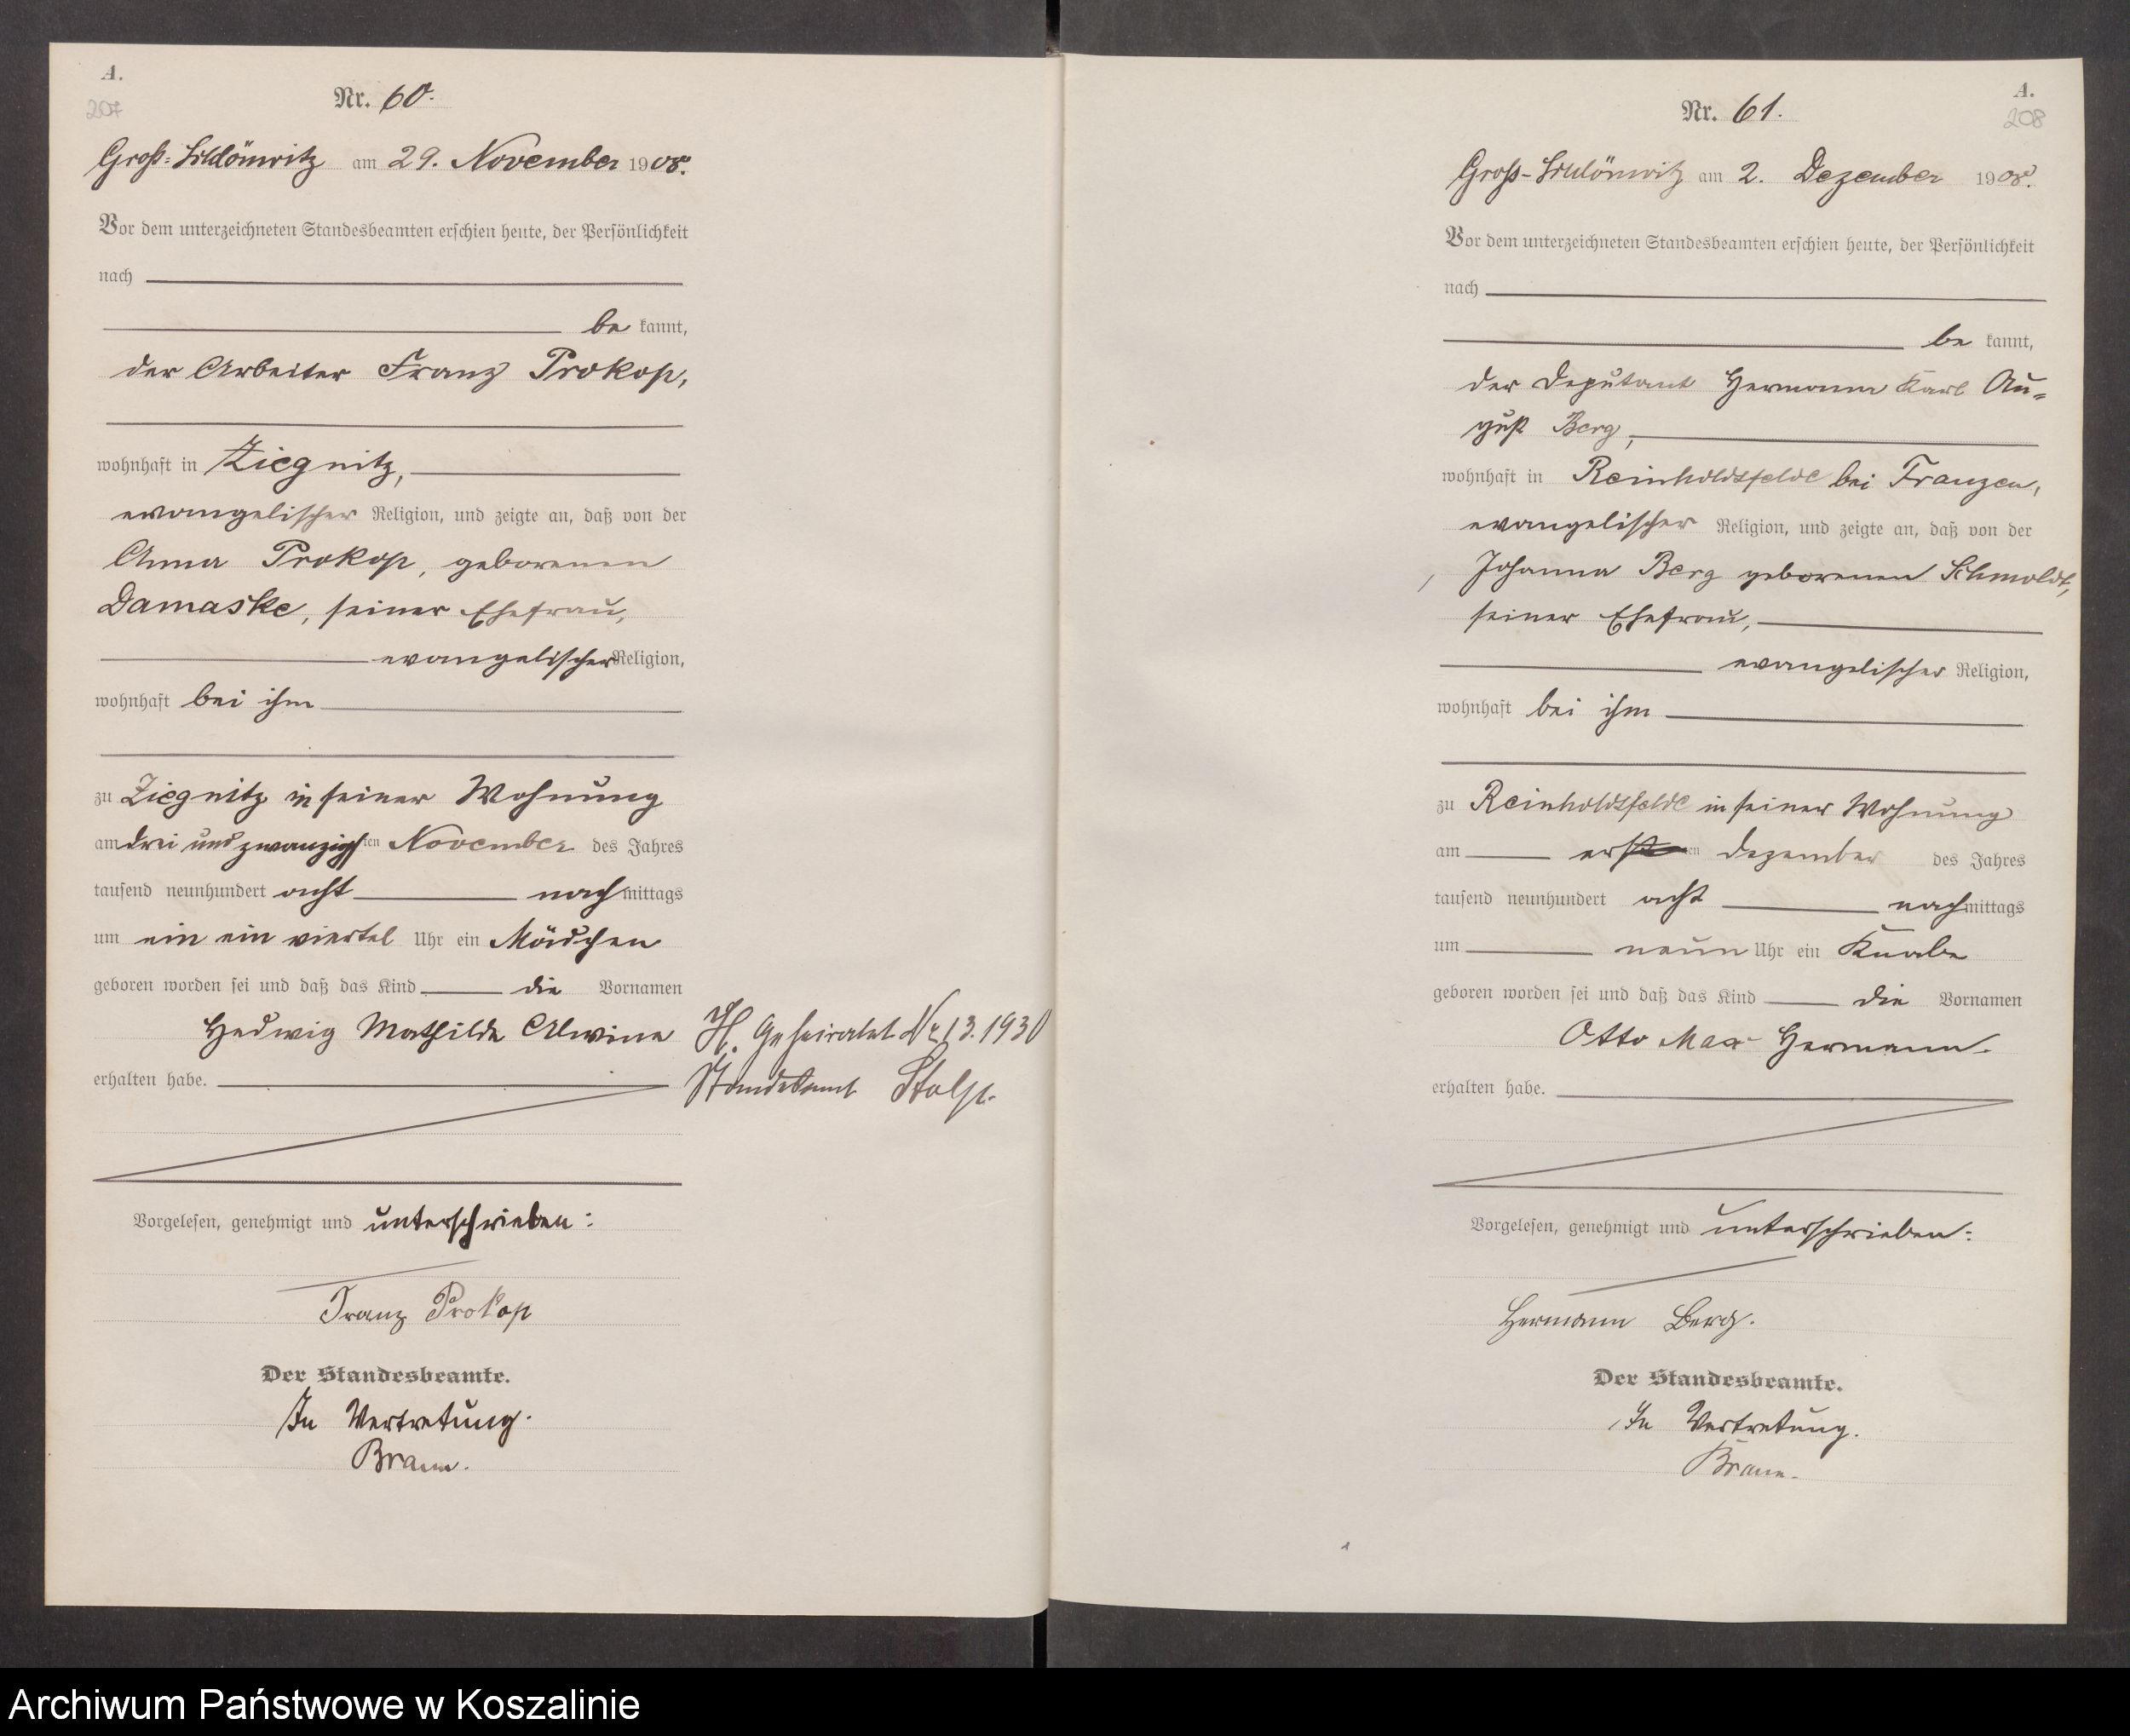 A.
207
Nr. 60.
Groß-Schlönwitz am 29. November 1908.
Vor dem unterzeichneten Standesbeamten erschien heute, der Persönlichkeit
nach
be kannt,
der Arbeiter Franz Prokop,
wohnhaft in Ziegnitz,
evangelischer Religion, und zeigte an, daß von der
Anna Prokop, geborenen
Damaske, seiner Ehefrau,
evangelischer Religion,
wohnhaft bei ihm
zu Ziegnitz in seiner Wohnung
am drei und zwanzigsten November des Jahres
tausend neunhundert acht nachmittags
um ein ein viertel Uhr ein Mädchen
geboren worden sei und daß das Kind die Vornamen
Hedwig Mathilde Alwine
erhalten habe.
H. Geheiratet Nr. 13.1930
Standesamt Stolp.
Vorgelesen, genehmigt und unterschrieben:
Franz Prokop
Der Standesbeamte.
In Vertretung.
Braun.
A.
208
Nr. 61.
Groß-Schlönwitz am 2. Dezember 1908.
Vor dem unterzeichneten Standesbeamten erschien heute, der Persönlichkeit
nach
be kannt,
der Deputant Hermann Karl Au=
gust Berg,
wohnhaft in Reinholdsfelde bei Franzen,
evangelischer Religion, und zeigte an, daß von der
Johanna Berg geborenen Schmoldt,
seiner Ehefrau,
evangelischer Religion,
wohnhaft bei ihm
zu Reinholdsfelde in seiner Wohnung
am ersten Dezember des Jahres
tausend neunhundert acht nachmittags
um neun Uhr ein Knabe
geboren worden sei und daß das Kind die Vornamen
Otto Max Hermann.
erhalten habe.
Vorgelesen, genehmigt und unterschrieben:
Hermann Berg.
Der Standesbeamte.
In Vertretung.
Braun.
Archiwum Państwowe w Koszalinie